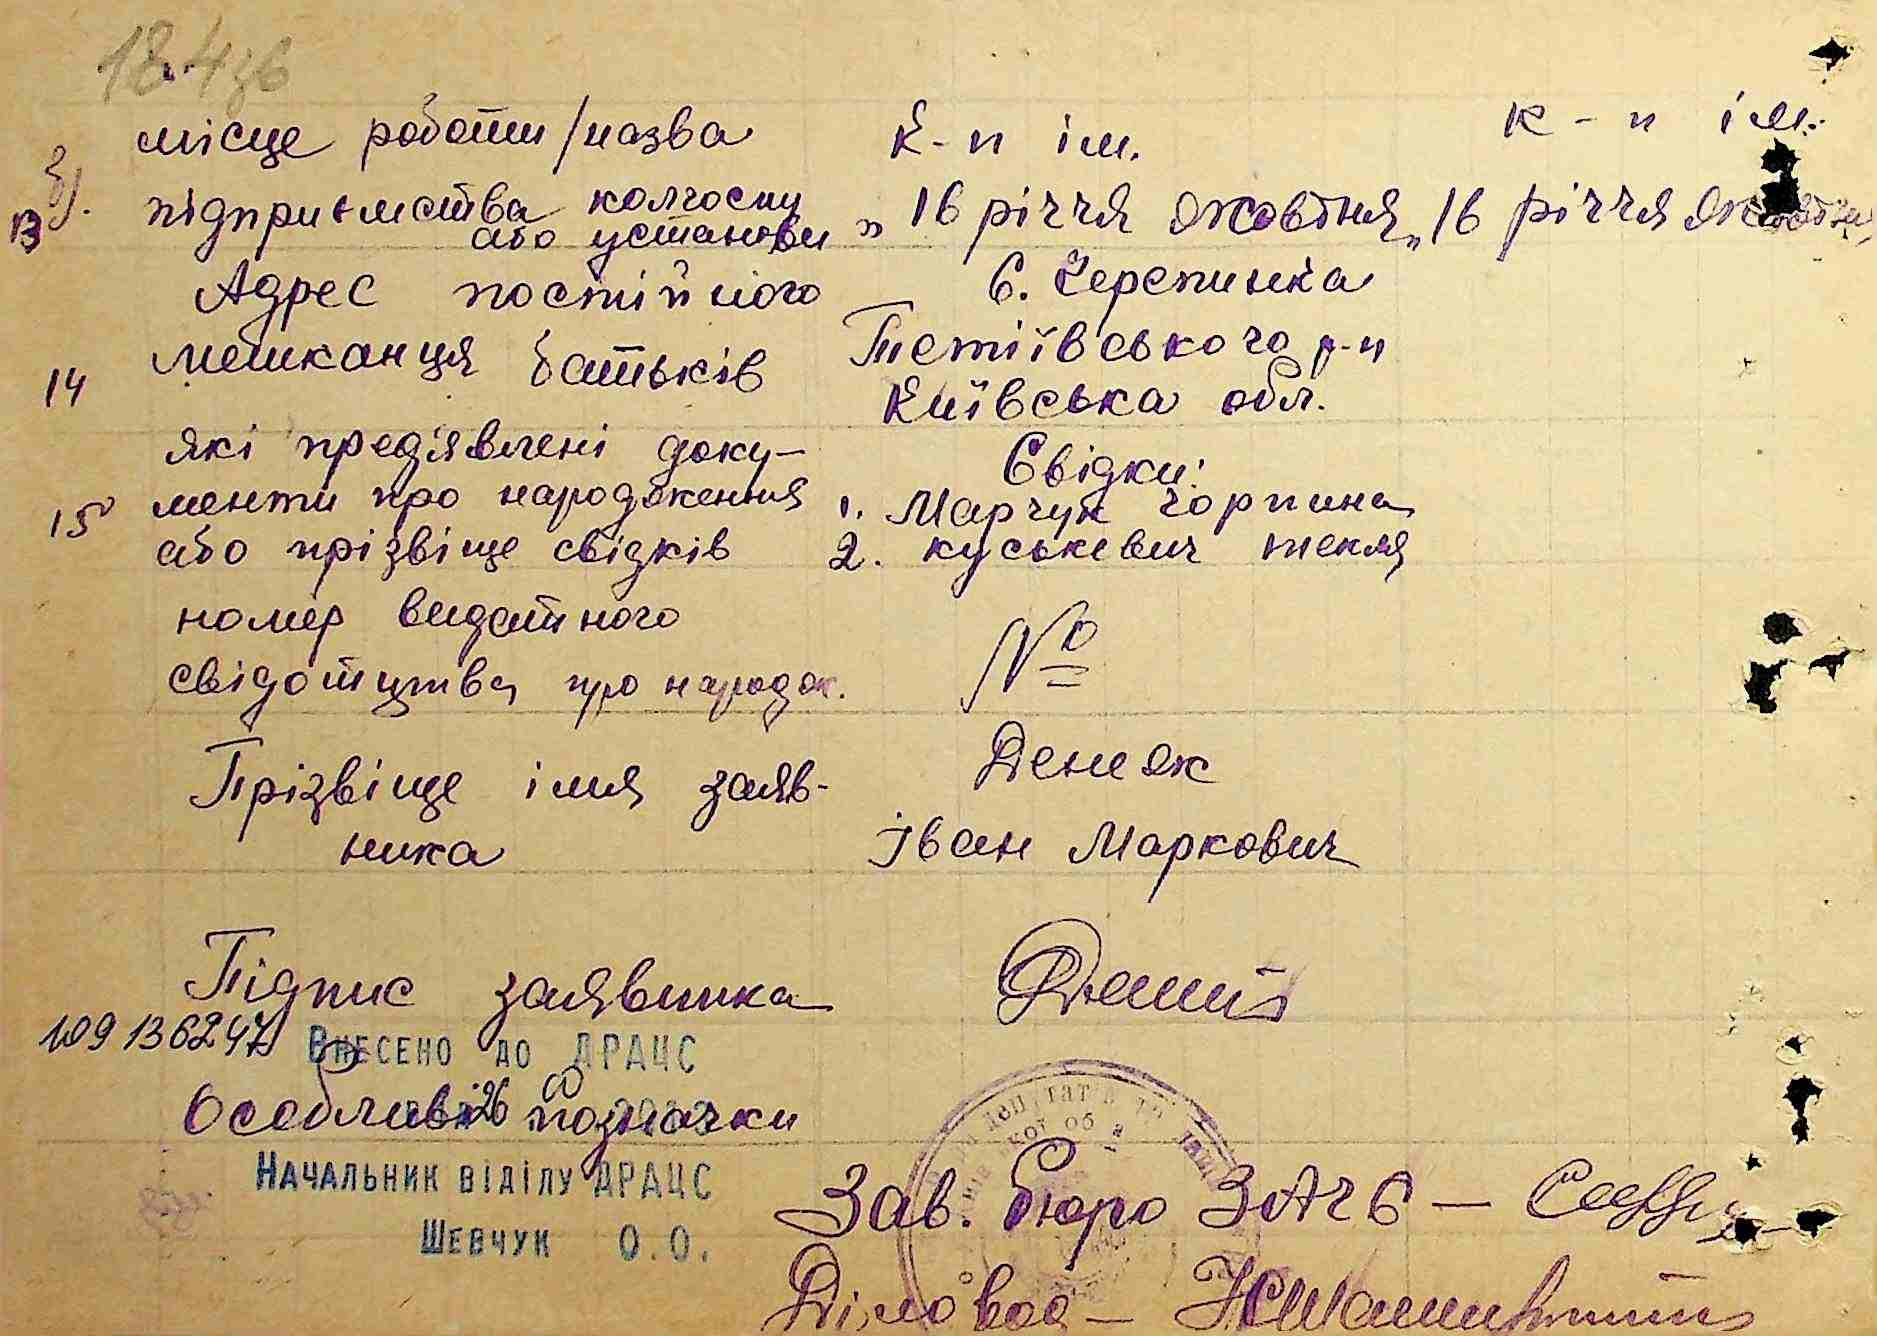 184зв
місце роботи/назва к-п ім. к-п ім.
13 б). підприємства колгоспу або установи „16 річчя жовтня „16 річчя жовтня
Адрес постійного с. Черепинка
14 мешканця батьків Тетіївського р-н
Київська обл.
які предявлені доку- Свідки:
15 менти про народження 1. Марчук Горпина
або прізвіще свідків 2. Куськевич текля
номер видатного №
свідотцтва про народж.
Прізвіще імя заяв- Денеж
ника Іван Маркович
Підпис заявника
109 136247 Внесено до ДРАЦС
Особливі позначки
26
Начальник відділу ДРАЦС
Шевчук О.О.
Зав. бюро ЗАГС —
Діловод —